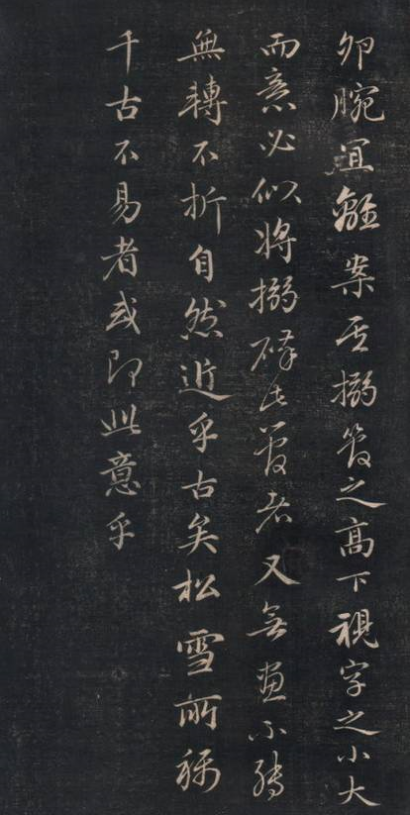 腕宜離案其搦管之高下視字之小大
而意必似將搦碎此管者又無畫不轉
無轉不折自然近乎古矣松雪所稱
千古不易者或即此意乎